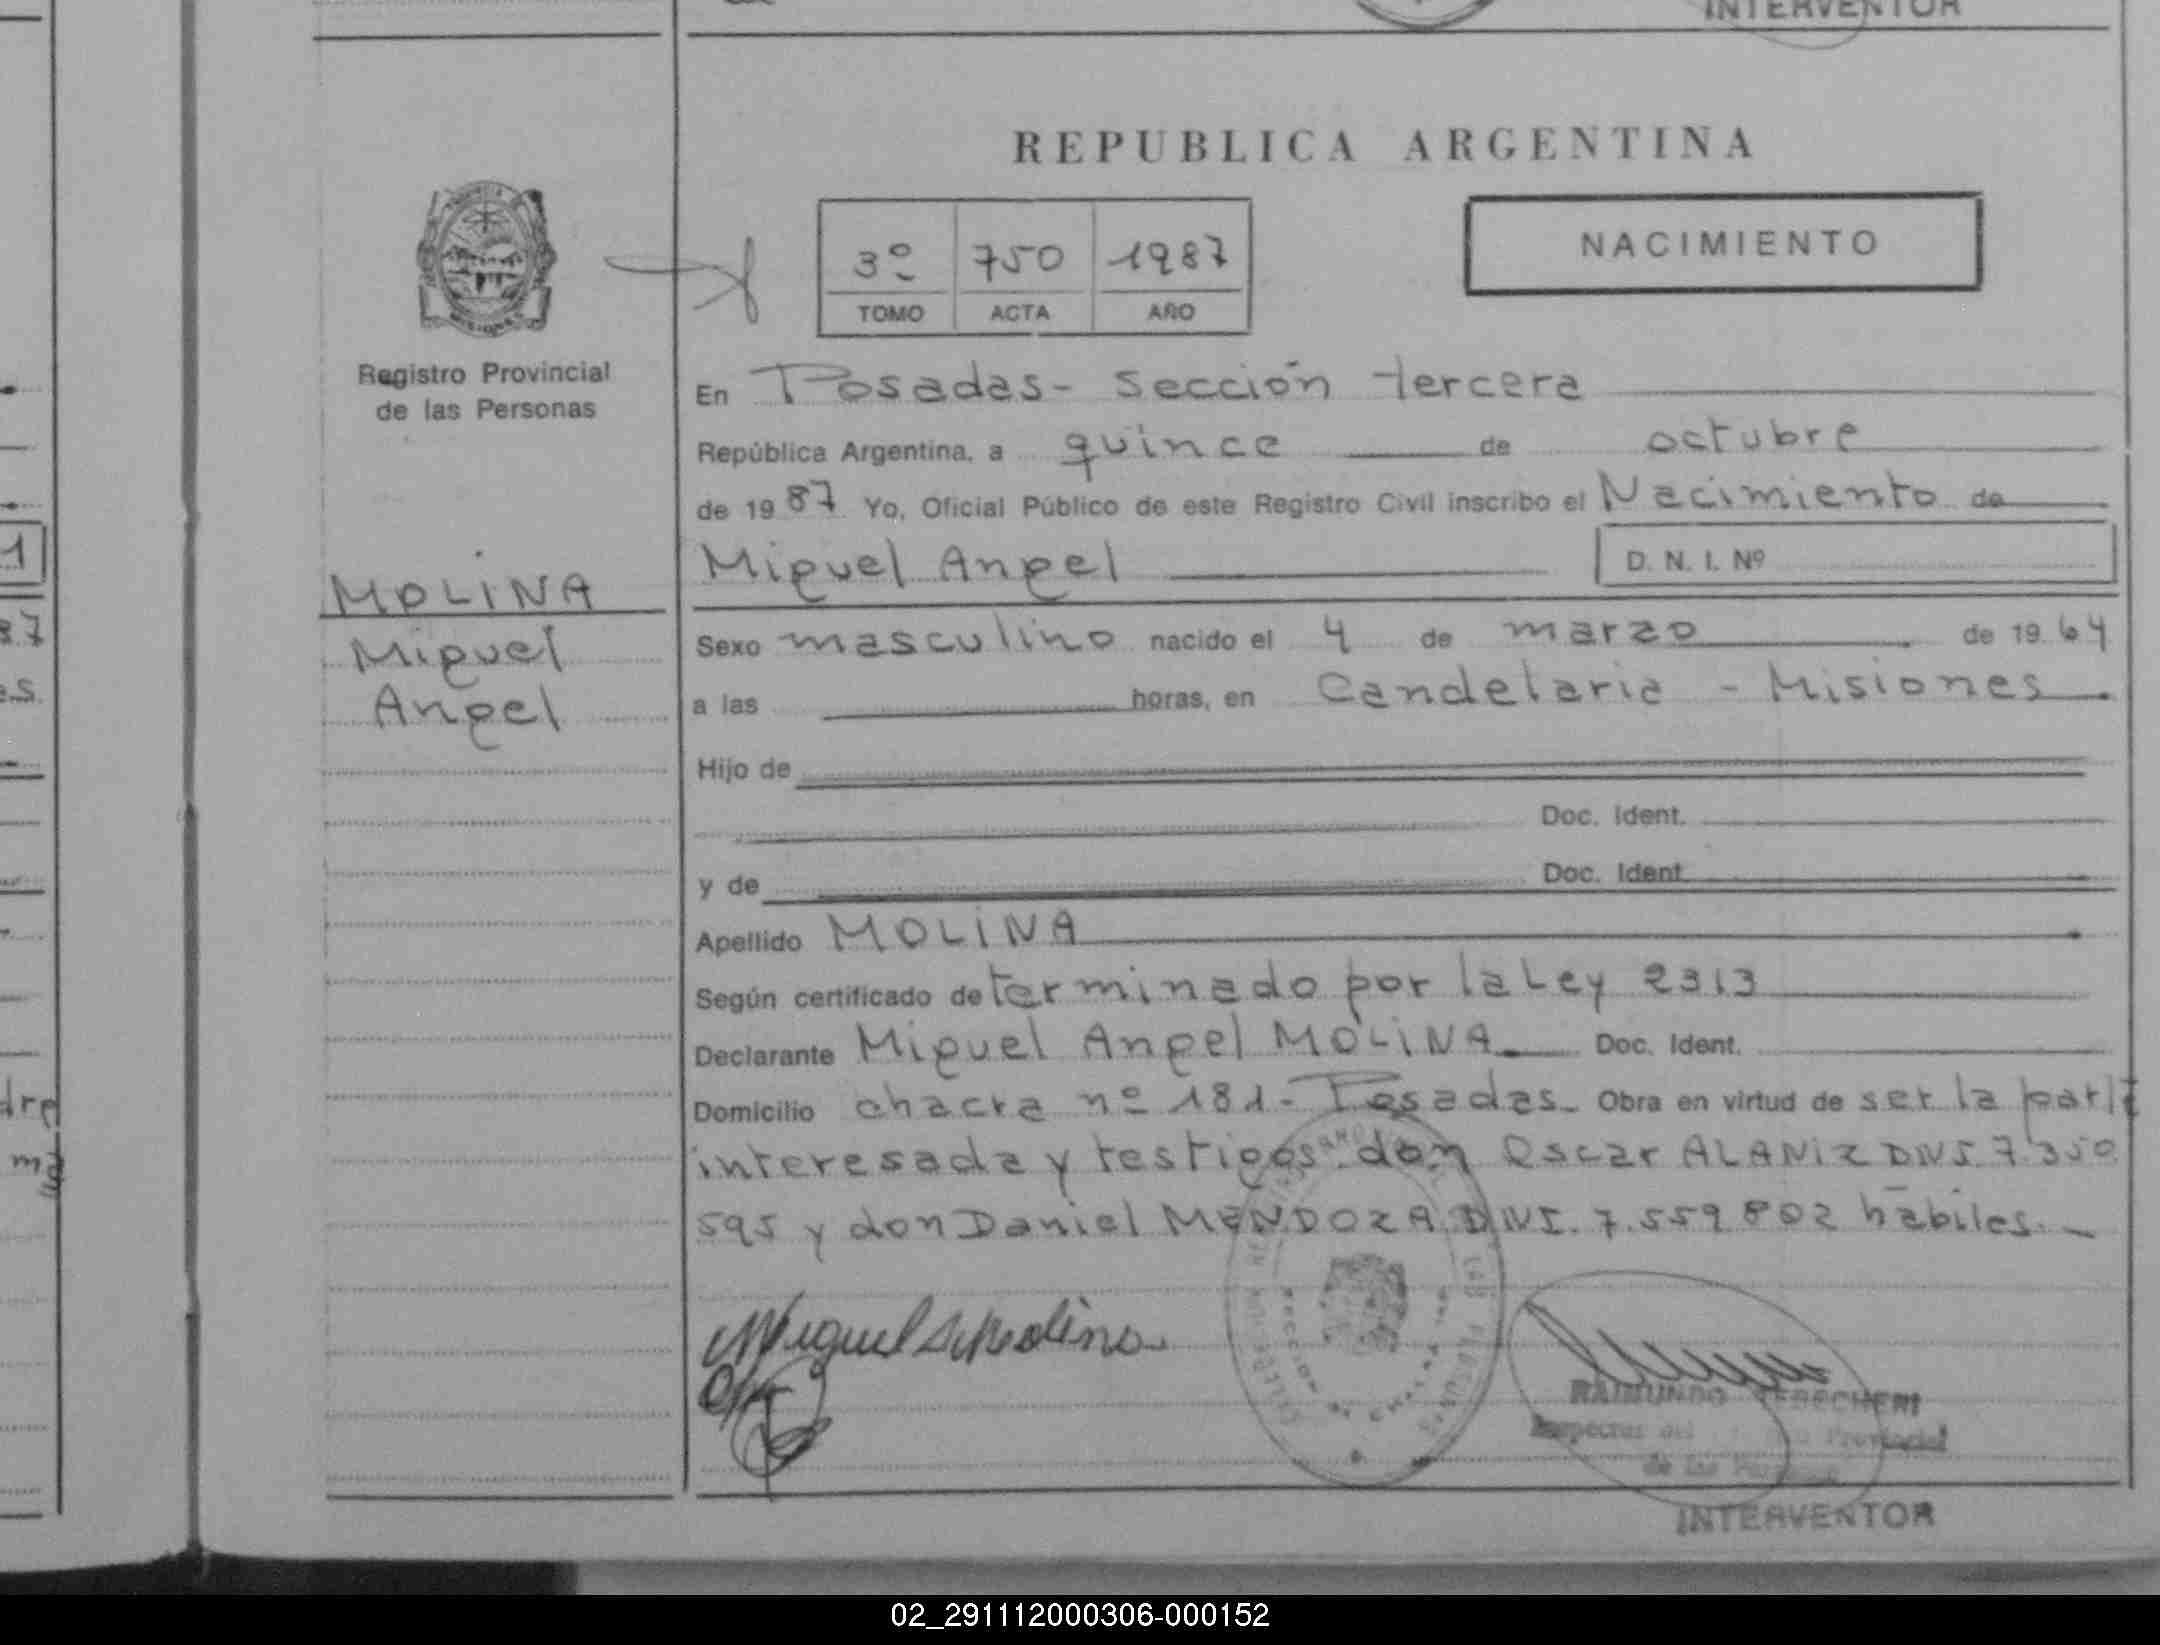 INTERVENTOR
REPUBLICA ARGENTINA
3º 750 1987
TOMO ACTA AÑO
NACIMIENTO
MISIONES
Registro Provincial
de las Personas
MOLINA
Miguel
Angel
En Posadas - Sección tercera
República Argentina, a quince de octubre
de 1987 Yo, Oficial Público de este Registro Civil inscribo el Nacimiento de
Miguel Angel D. N. I. Nº
Sexo masculino nacido el 4 de marzo de 1964
a las horas, en Candelaria - Misiones
Hijo de
Doc. Ident.
y de Doc. Ident.
Apellido MOLINA
Según certificado determinado por la Ley 2313
Declarante Miguel Angel MOLINA Doc. Ident.
Domicilio chacra nº 181 - Posadas - Obra en virtud de ser la parte
interesada y testigos don Oscar ALANIZ DNI. 7.350
595 y don Daniel MENDOZA DNI. 7.559.802 hábiles. -
Miguel A Molina
RAIMUNDO
Provincial
de las
INTERVENTOR
1
87
es.
dre
ma
02_291112000306-000152